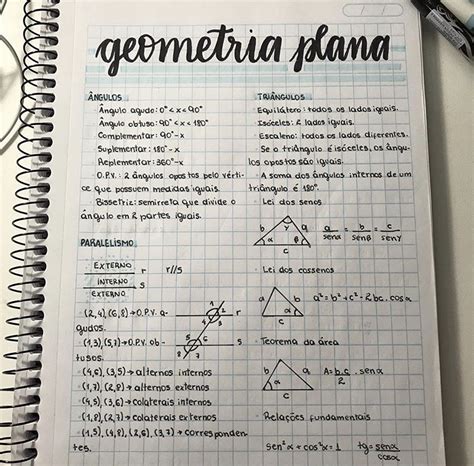 geometria plana
ÂNGULOS
· Ângulo agudo: 0° < x < 90°
· Ângulo obtuso: 90° < x < 180°
· Complementar: 90° - x
· Suplementar: 180° - x
· Replementar: 360° - x
· O.P.V.: 2 ângulos opostos pelo vérti-
ce que possuem medidas iguais.
· Bissetriz: semirreta que divide o
ângulo em 2 partes iguais.
PARALELISMO
EXTERNO
r
r//s
INTERNO
s
EXTERNO
· (2,4), (6,8) → O.P.V. a-
gudos.
· (1,3), (5,7) → O.P.V. ob-
tusos.
· (4,6), (3,5) → alternos internos
· (1,7), (2,8) → alternos externos
· (4,5), (3,6) → colaterais internos
· (1,8), (2,7) → colaterais externos
· (1,5), (4,8), (2,6), (3,7) → corresponden-
tes.
1
2
r
4
3
5
6
s
8
7
TRIÂNGULOS
· Equilátero: todos os lados iguais.
· Isóceles: 2 lados iguais.
· Escaleno: todos os lados diferentes.
· Se o triângulo é isóceles, os ângu-
los opostos são iguais.
· A soma dos ângulos internos de um
triângulo é 180°.
· Lei dos senos
b γ a
α β
c
a/senα = b/senβ = c/senγ
· Lei dos cossenos
a b
α
c
a² = b² + c² - 2bc . cosα
· Teorema da área
b a
α
c
A = b.c/2 . senα
· Relações fundamentais
sen²α + cos²x = 1 tg = senα/cosα